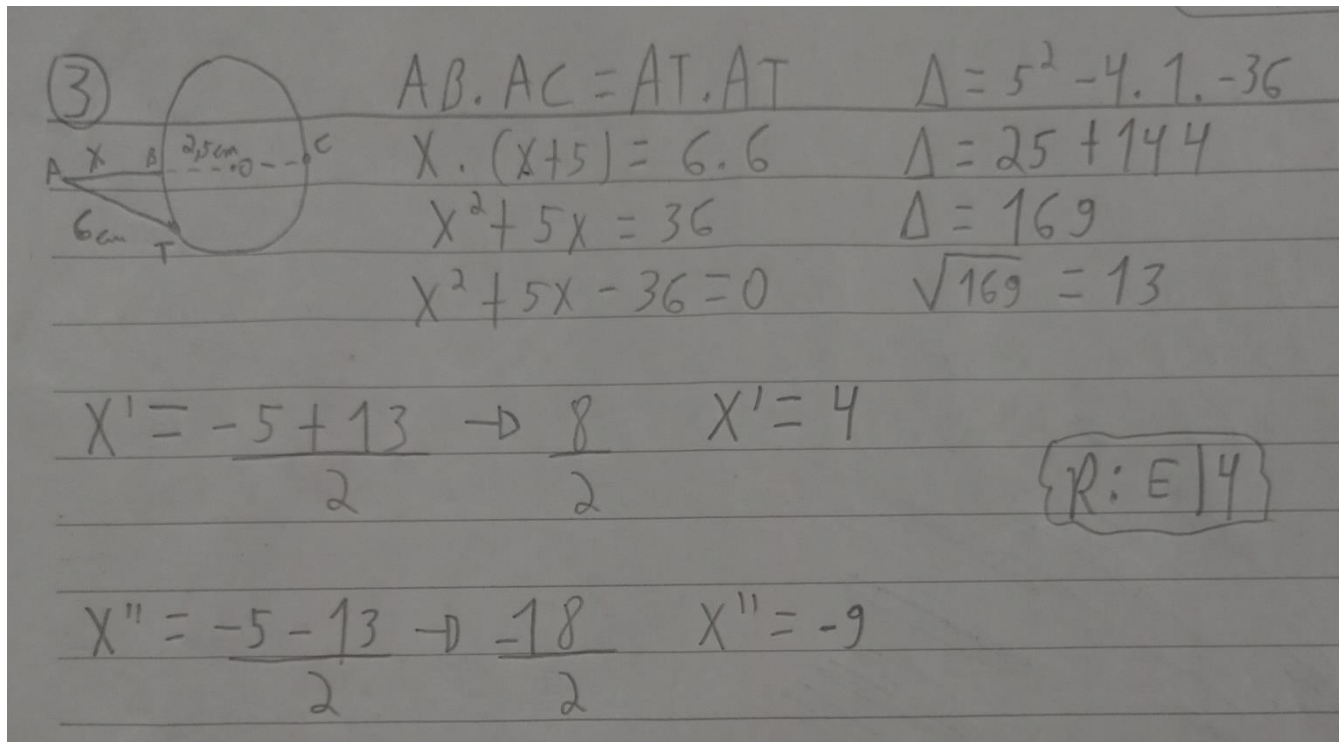 3
A x B 2,5cm O C
6cm T
AB. AC = AT. AT
X. (x+5) = 6.6
X² + 5x = 36
X² + 5x - 36 = 0
Δ = 5² - 4. 1. -36
Δ = 25 + 144
Δ = 169
√169 = 13
X' = -5 + 13 / 2 → 8 / 2 X' = 4
R: E | 4
X'' = -5 - 13 / 2 → -18 / 2 X'' = -9